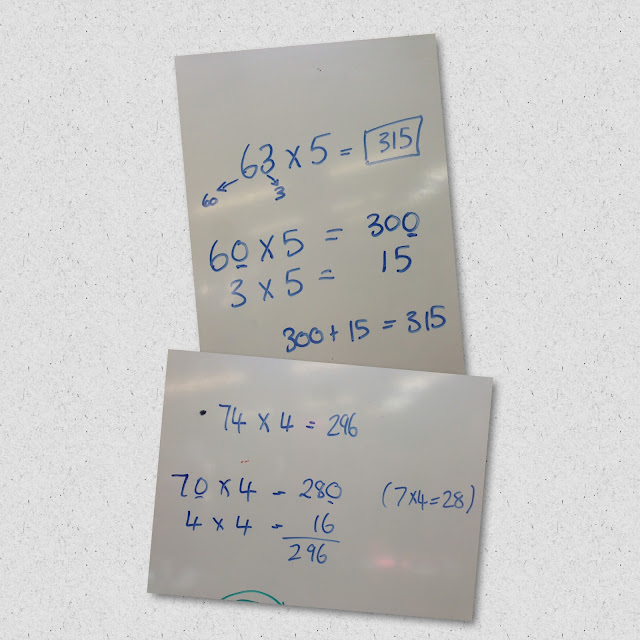 63 x 5 = 315
60 3
60 x 5 = 300
3 x 5 = 15
300 + 15 = 315
• 74 x 4 = 296
70 x 4 - 280 (7x4=28)
4 x 4 - 16
296